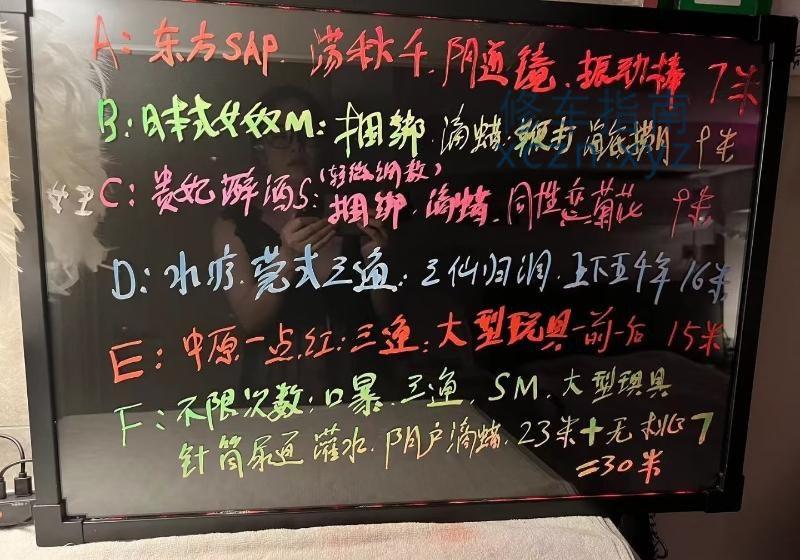 A: 东方SAP. 荡秋千. 阴道镜. 振动棒 7米
B: 日本式女奴M: 捆绑. 滴蜡. 鞭打 9米
C: 贵妃醉酒S: (轻微调教) 捆绑. 滴蜡. 同性恋菊花 9米
D: 水疗. 莞式三通: 三仙归洞. 上下五千年 16米
E: 中原一点红: 三通: 大型玩具一前一后 15米
F: 不限次数: 口暴. 三通. SM. 大型玩具
针筒尿道灌水. 阴户滴蜡. 23米+无 7
=30米
修车指南